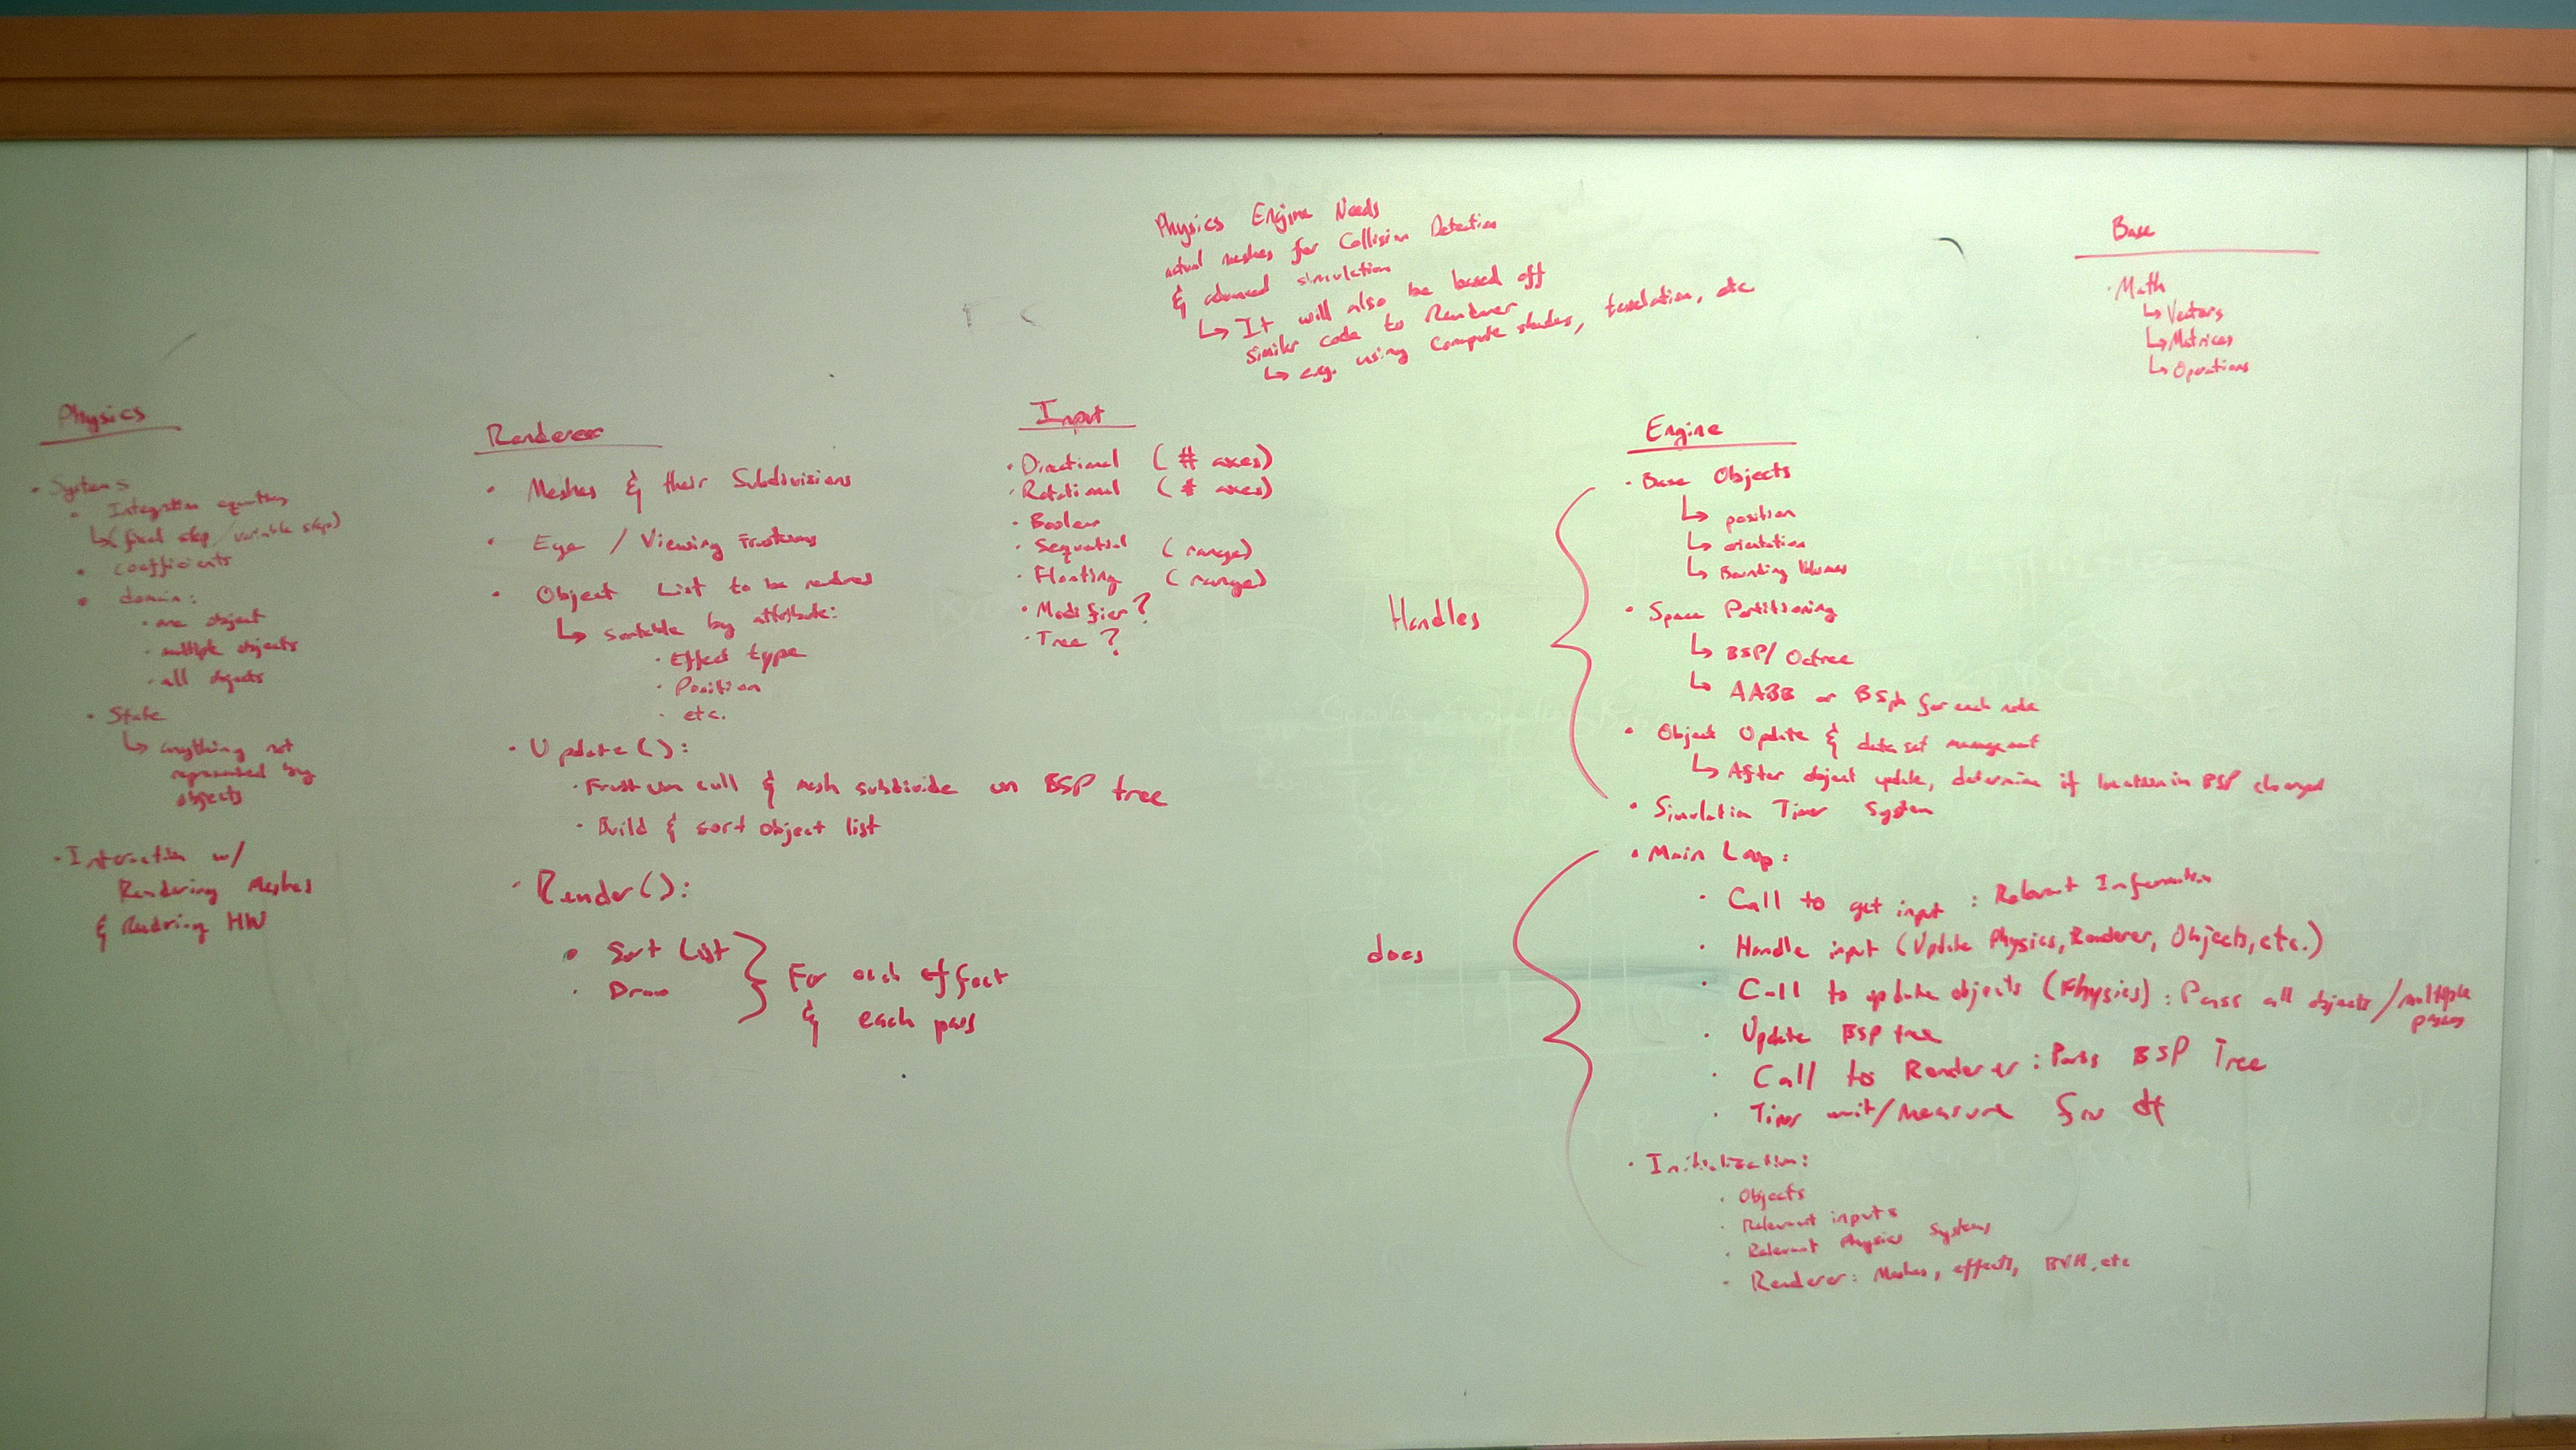 Physics Engine Needs
actual meshes for Collision Detection
& advanced simulation
↳ It will also be based off
similar code to Renderer
↳ e.g. using Compute shaders, teselation, etc
Base
· Math
↳ Vectors
↳ Matrices
↳ Operations
Physics
· Systems
· Integration equations
↳ (fixed step / variable step)
· coefficients
· domain:
· one object
· multiple objects
· all objects
· State
↳ anything not
represented by
objects
· Interaction w/
Rendering Meshes
& Rendring HW
Renderer
· Meshes & their Subdivisions
· Eye / Viewing Frustrums
· Object List to be rendered
↳ sortable by attribute:
· Effect type
· Position
· etc.
· Update():
· Frustum cull & mesh subdivide on BSP tree
· Build & sort object list
· Render():
· Sort List
· Draw
For each effect
& each pass
Input
· Directional (# axes)
· Rotational (# axes)
· Boolean
· Sequential (range)
· Floating (range)
· Modifier?
· Tree?
Handles
Engine
· Base Objects
↳ position
↳ orientation
↳ Bounding Volumes
· Space Partitioning
↳ BSP/Octree
↳ AABB or BSph for each node
· Object Update & data set management
↳ After object update, determine if location in BSP changed
· Simulation Timer System
does
· Main Loop:
· Call to get input : Relevant Information
· Handle input (Update Physics, Renderer, Objects, etc.)
· Call to update objects (Physics) : Pass all objects / multiple
passes
· Update BSP tree
· Call to Renderer : Pass BSP Tree
· Timer wait/measure for dt
· Initialization:
· Objects
· Relevant inputs
· Relevant Physics Systems
· Renderer: Meshes, effects, BVH, etc